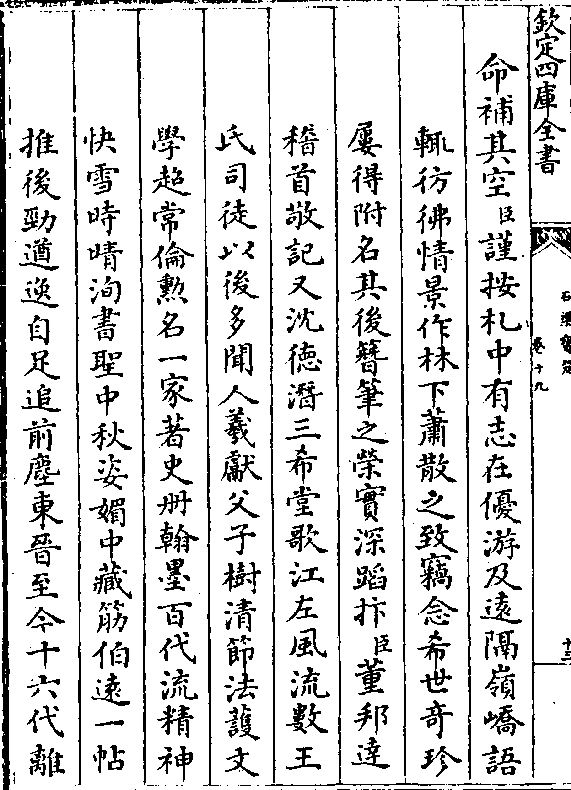 欽定四庫全書
卷十九
十三
命補其空臣謹按札中有志在優游及遠隔嶺嶠語
輒彷彿情景作林下蕭散之致竊念希世奇珍
屢得附名其後簪筆之榮實深蹈抃臣董邦達
稽首敬記又沈德潛三希堂歌江左風流數王
氏司徒以後多聞人羲獻父子樹清節法護文
學超常倫勲名一家著史册翰墨百代流精神
快雪時晴洵書聖中秋姿媚中藏筋伯遠一帖
推後勁遒逸自足追前塵東晉至今十六代離